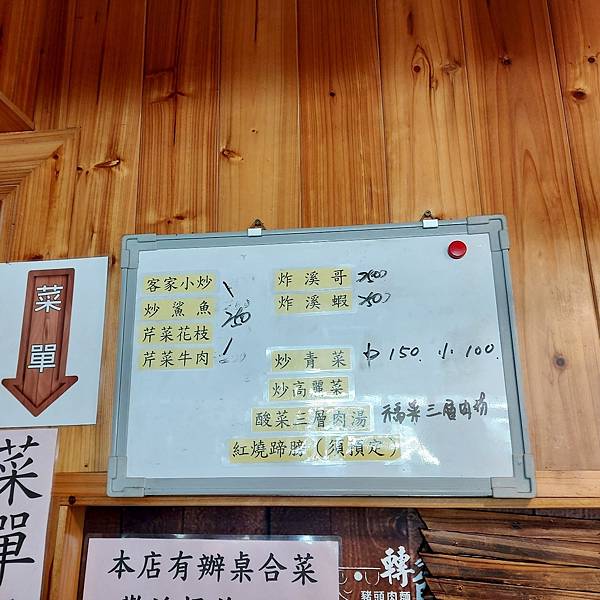 菜單
客家小炒
炒鯊魚
芹菜花枝
芹菜牛肉
炸溪哥
炸溪蝦
炒青菜 中150. 小100.
炒高麗菜
酸菜三層肉湯 福菜三層肉湯
紅燒蹄膀（須預定）
菜單
本店有辦桌合菜
轉
豬頭肉麵